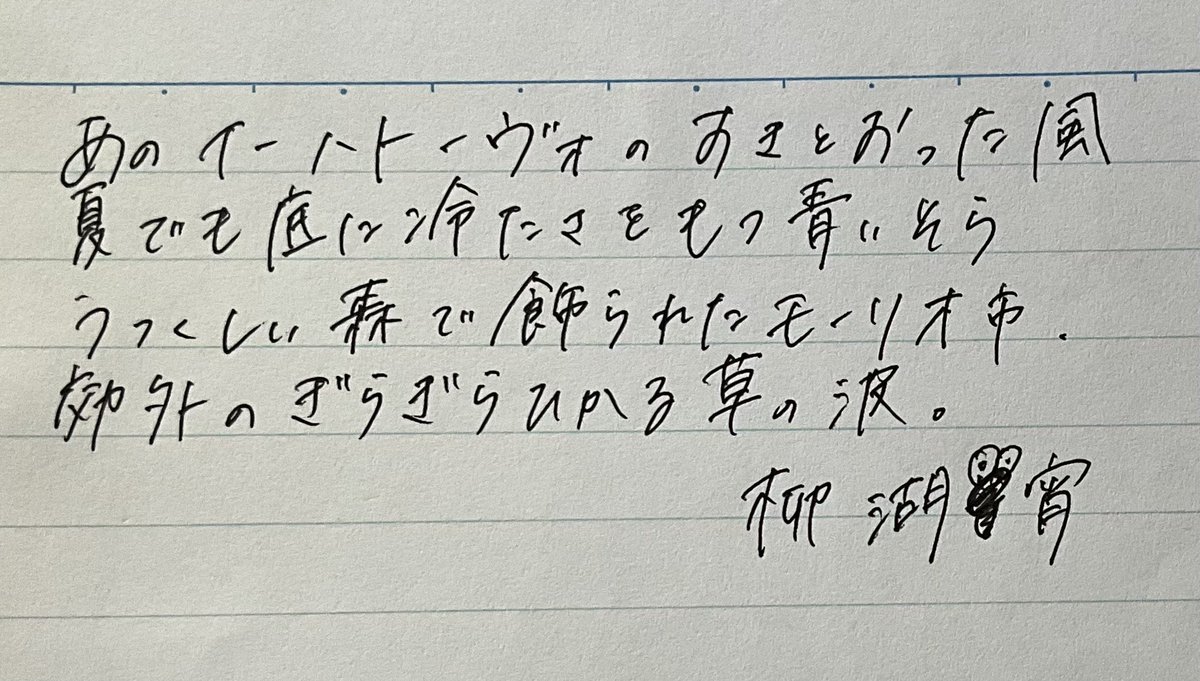 あのイーハトーヴォのすきとおった風
夏でも底に冷たさをもつ青いそら
うつくしい森で飾られたモーリオ市.
効外のぎらぎらひかる草の波。
柳 湖宵